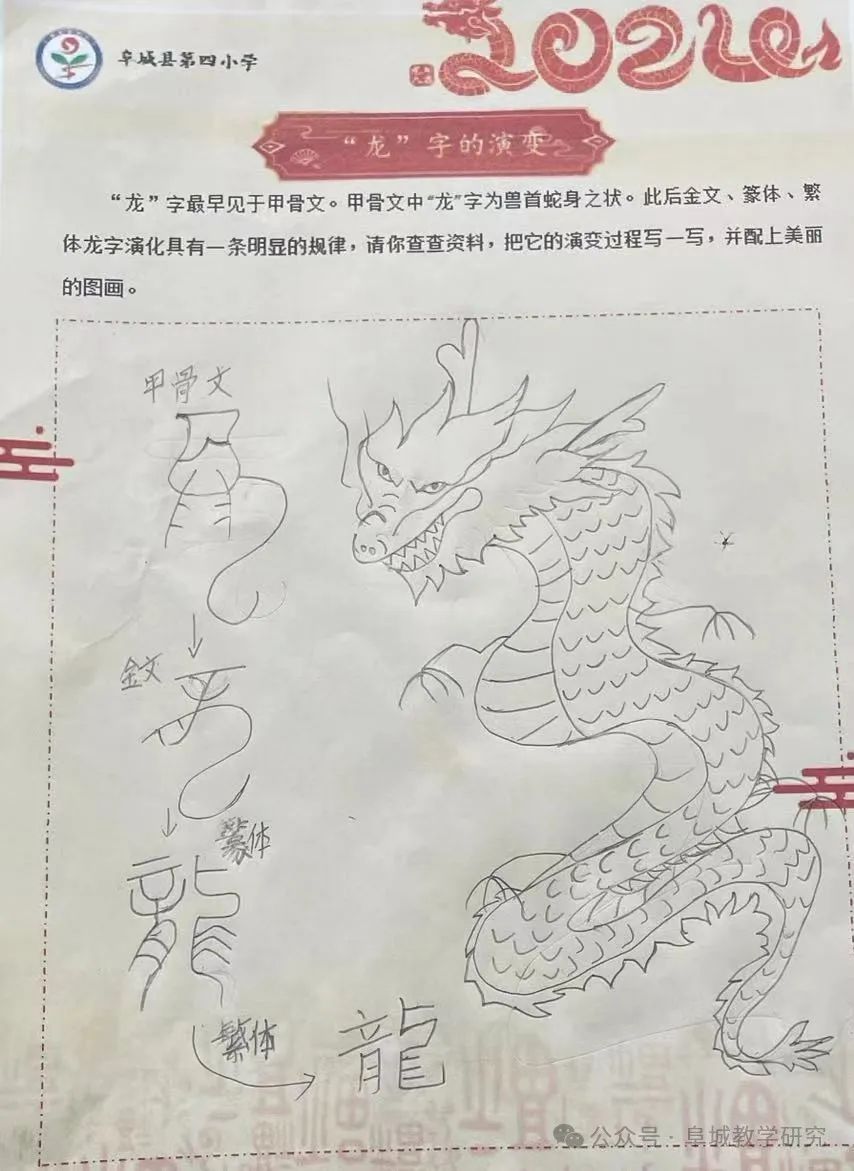 阜城县第四小学
2024
“龙”字的演变
“龙”字最早见于甲骨文。甲骨文中“龙”字为兽首蛇身之状。此后金文、篆体、繁
体龙字演化具有一条明显的规律，请你查查资料，把它的演变过程写一写，并配上美丽
的图画。
甲骨文
金文
篆体
繁体
龍
公众号·阜城教学研究